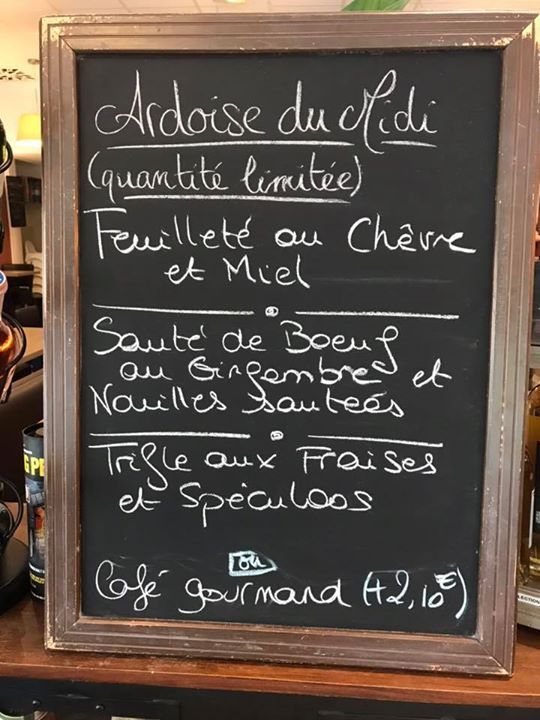 Ardoise du Midi
(quantité limitée)
Feuilleté au Chêvre
et Miel
Sauté de Boeuf
au Gingembre et
Nouilles sautées
Trifle aux Fraises
et Spéculoos
ou
Café gourmand (+2,10€)